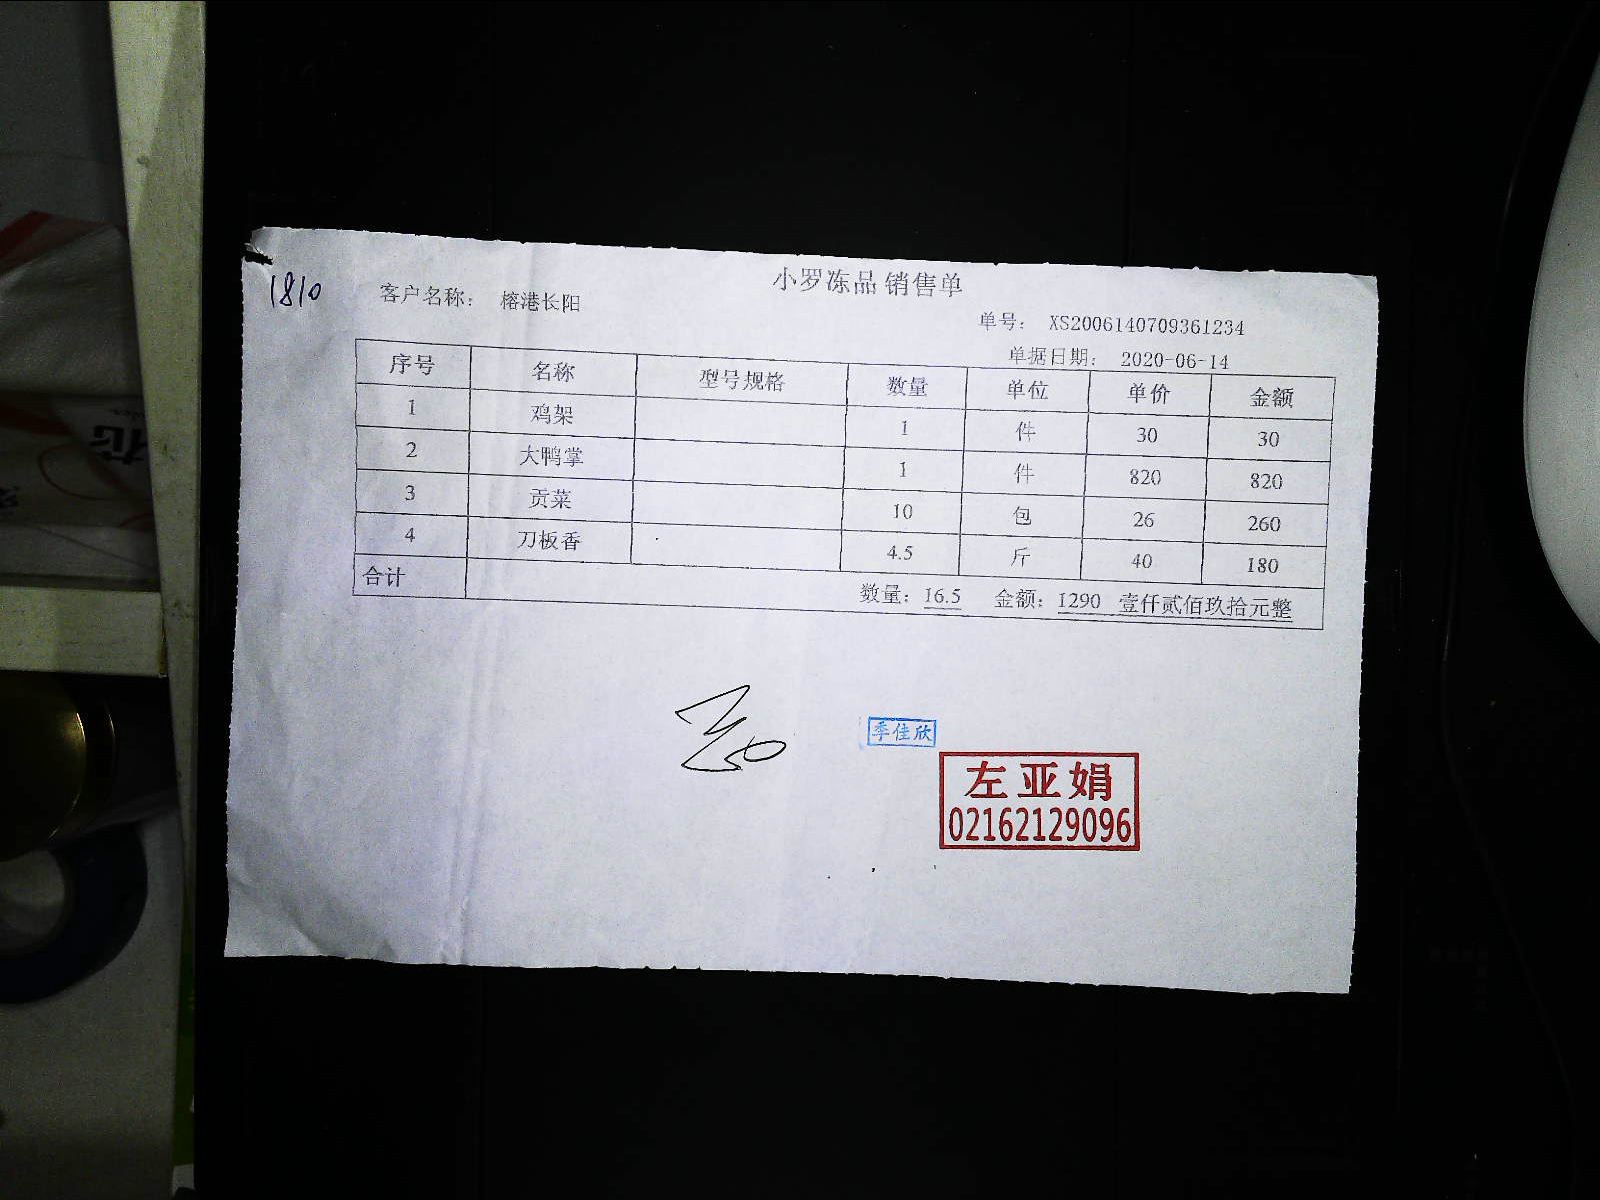 小罗冻品 销售单
1810
客户名称： 榕港长阳
单号： XS2006140709361234
单据日期： 2020-06-14
序号 名称 型号规格 数量 单位 单价 金额
1 鸡架 1 件 30 30
2 大鸭掌 1 件 820 820
3 贡菜 10 包 26 260
4 刀板香 4.5 斤 40 180
合计 数量：16.5 金额：1290 壹仟贰佰玖拾元整
季佳欣
左亚娟
02162129096